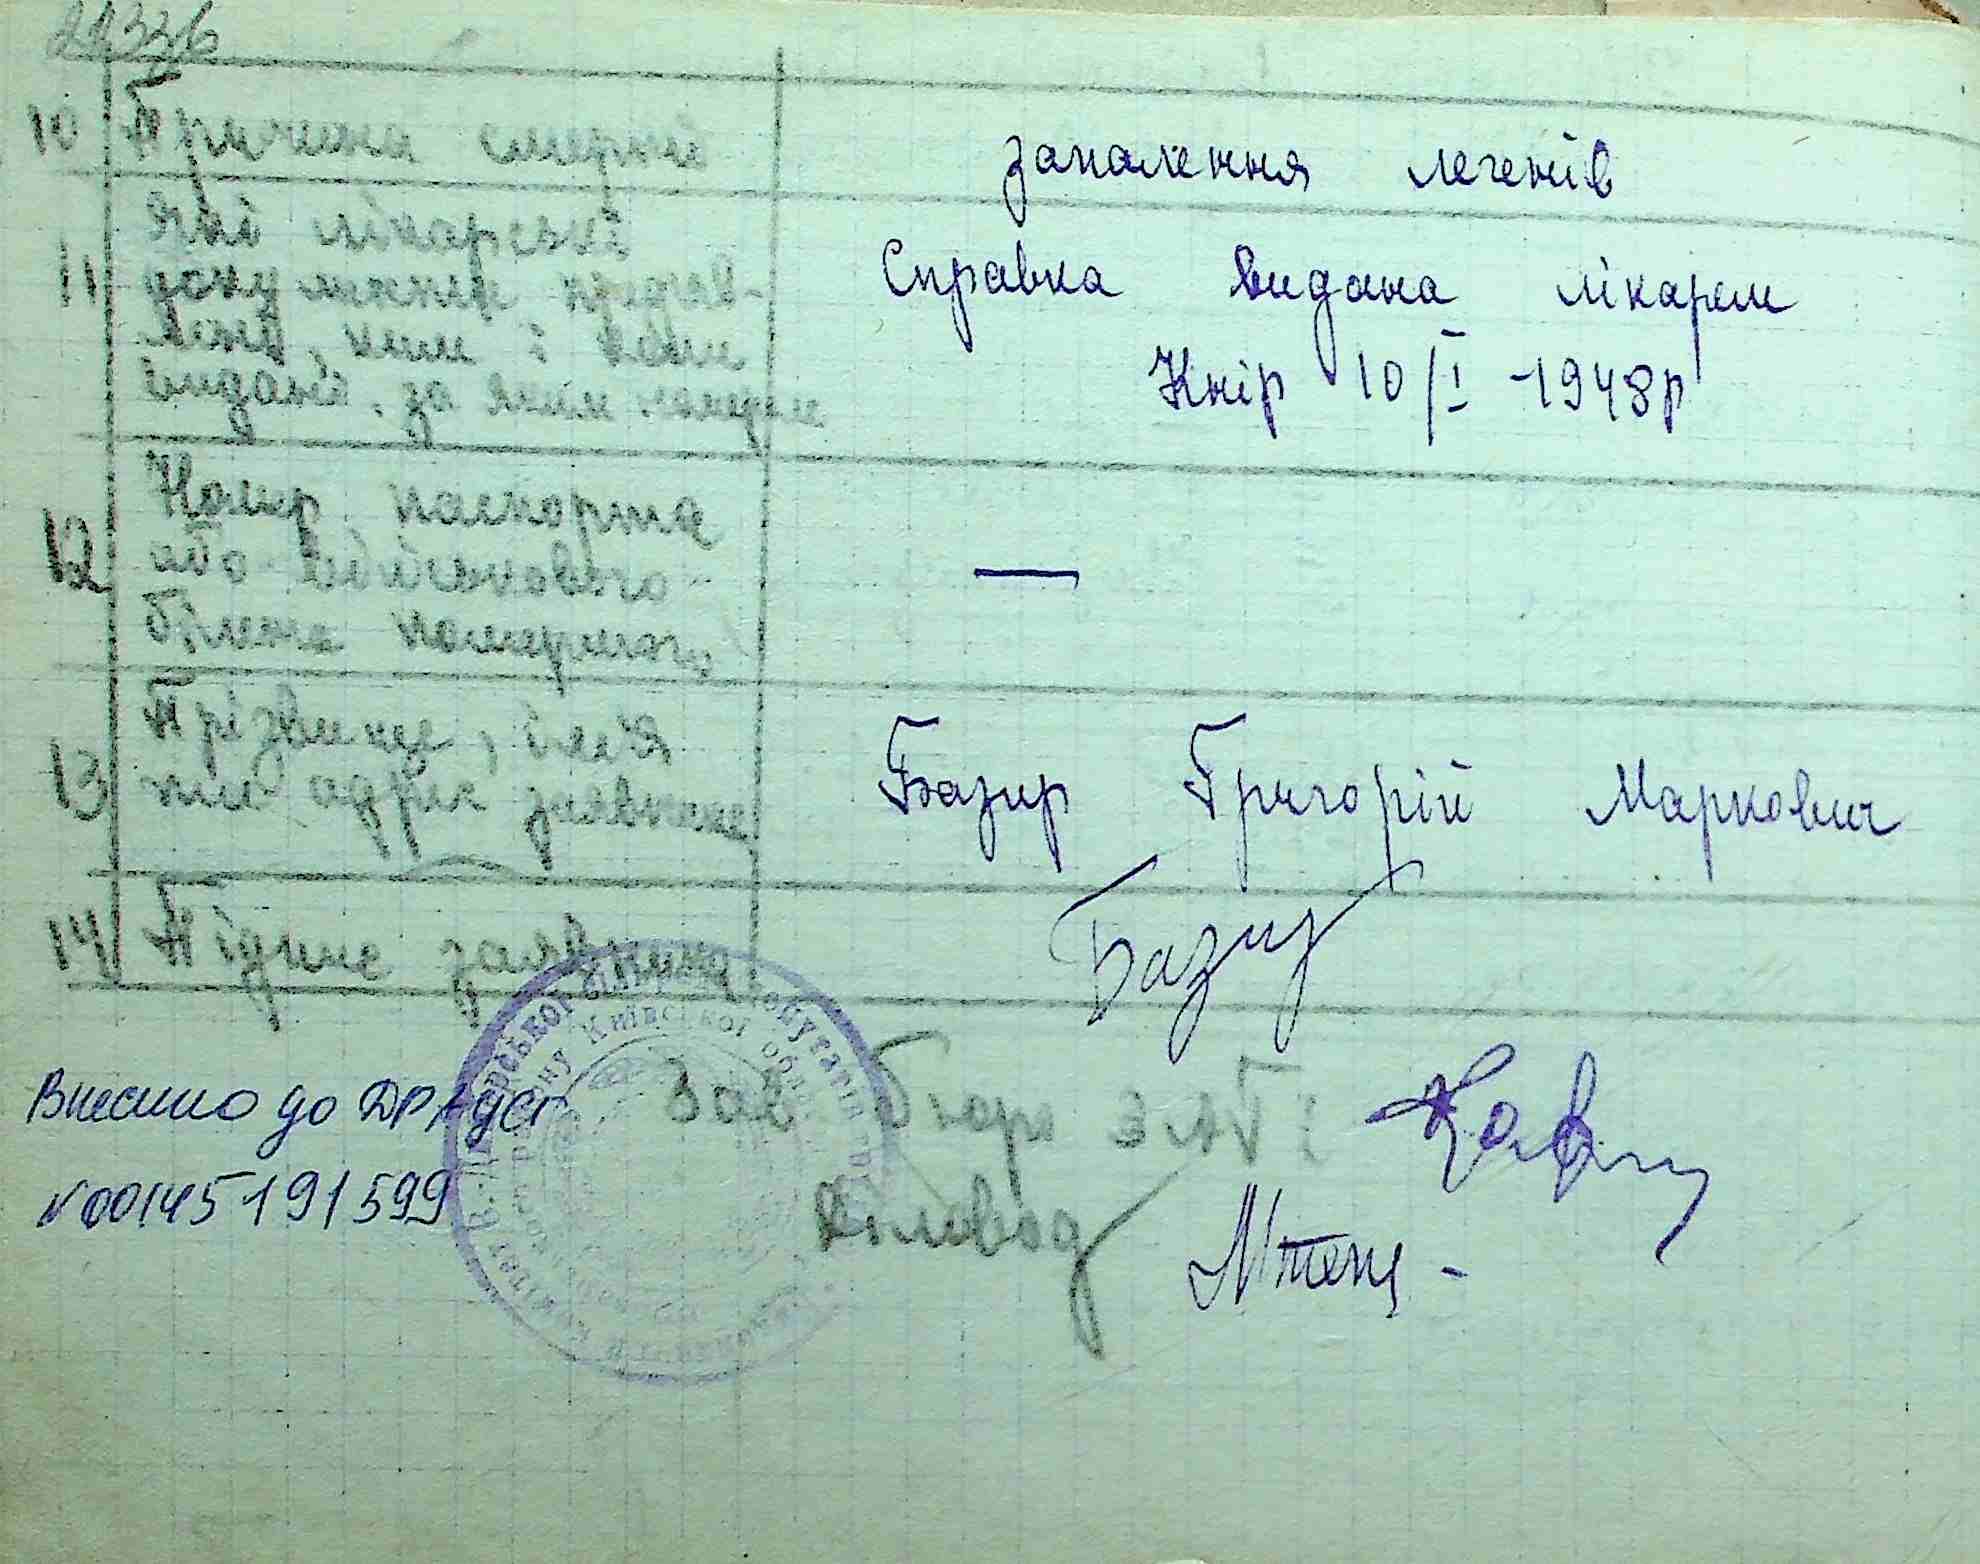 10 Причина смерті запалення легенів
11 Які лікарські
документи представ-
лені, ким і коли
видані, за яким номером
Справка видана лікарем
Кнір 10/I -1948р
12 Номер паспорта
або військового
білета померлого
—
13 Прізвище, ім'я
та адрес заявника
Базир Григорій Маркович
14 Підпис заявника Базир
Внесено до ДРАЦСГ
№00145191599
Зав бюро ЗАГС:
Діловод